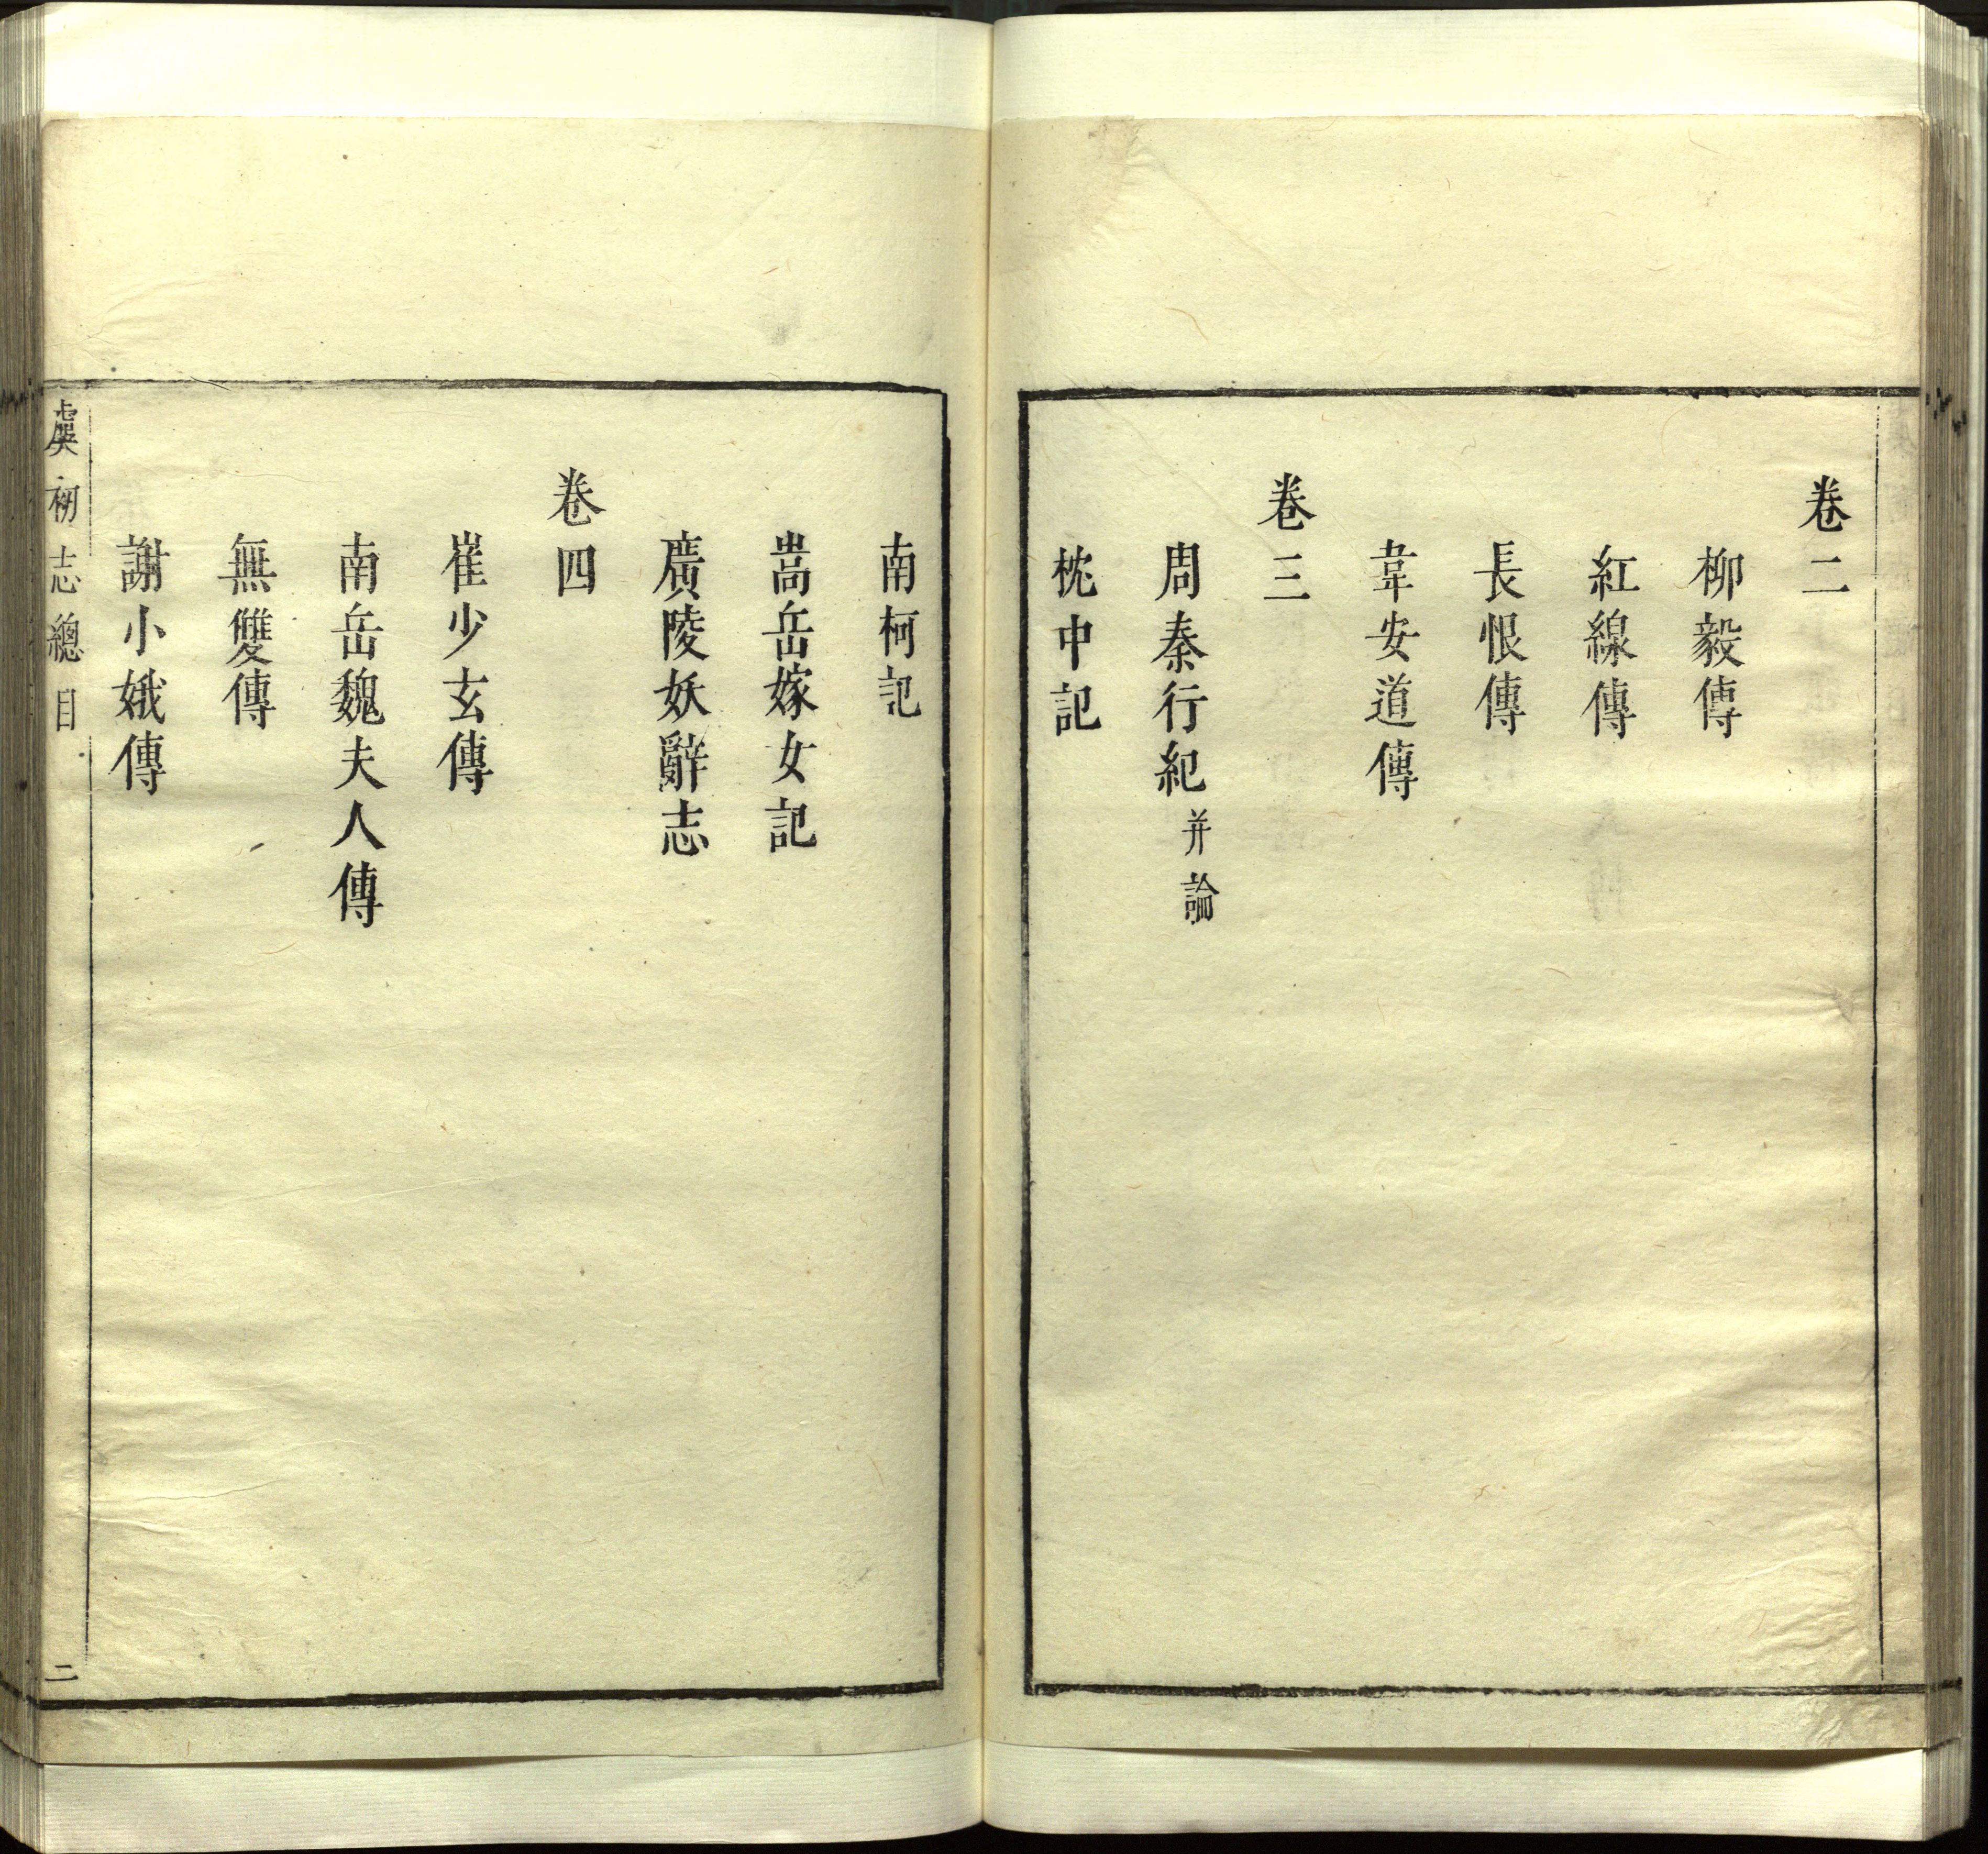 卷二
柳毅傳
紅線傳
長恨傳
韋安道傳
卷三
周秦行紀并論
枕中記
南柯記
嵩岳嫁女記
廣陵妖亂志
卷四
崔少玄傳
南岳魏夫人傳
無雙傳
謝小娥傳
虞初志總目
二